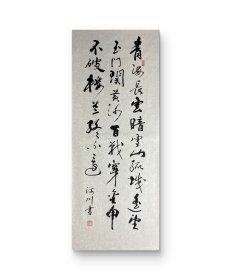 青海长云暗雪山孤城遥望
玉门关黄沙百战穿金甲
不破楼兰终不还
河川书